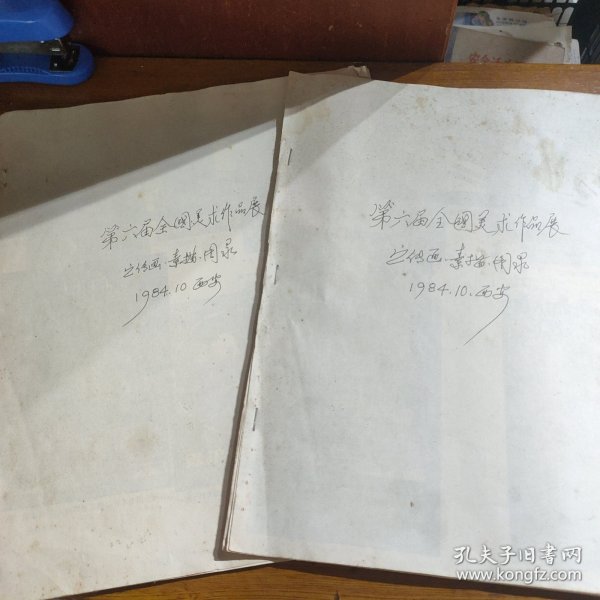 第六届全國美术作品展
宣传画、素描、图录
1984.10 西安
第六届全國美术作品展
宣传画、素描、图录
1984.10. 西安
孔夫子旧书网
www.kongfz.com